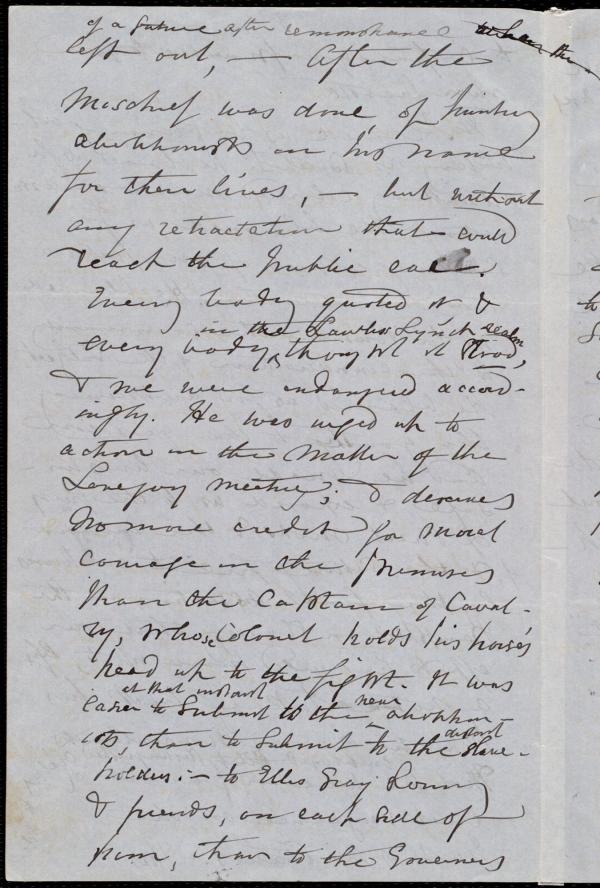 of a future after remonstrance
left out, — After the
Mischief was done, of hunting
abolitionists in his name
for their lives, — but without
any retractation that could
reach the public ear.
Every body quoted it &
in the Lawless Lynch realm
every body thought it good,
& we were endangered accord-
ingly. He was urged up to
action in the matter of the
Lovejoy meeting; & deserves
No more credit for moral
courage in the premises
than the Captain of Caval-
ry, whose Colonel holds his horse's
head up to the fight. It was
at that instant near
easier to submit to the abolition-
distant
ists, than to submit to the slave-
holders: — to Ellis Gray Loring
& friends, on each side of
him, than to the Governors